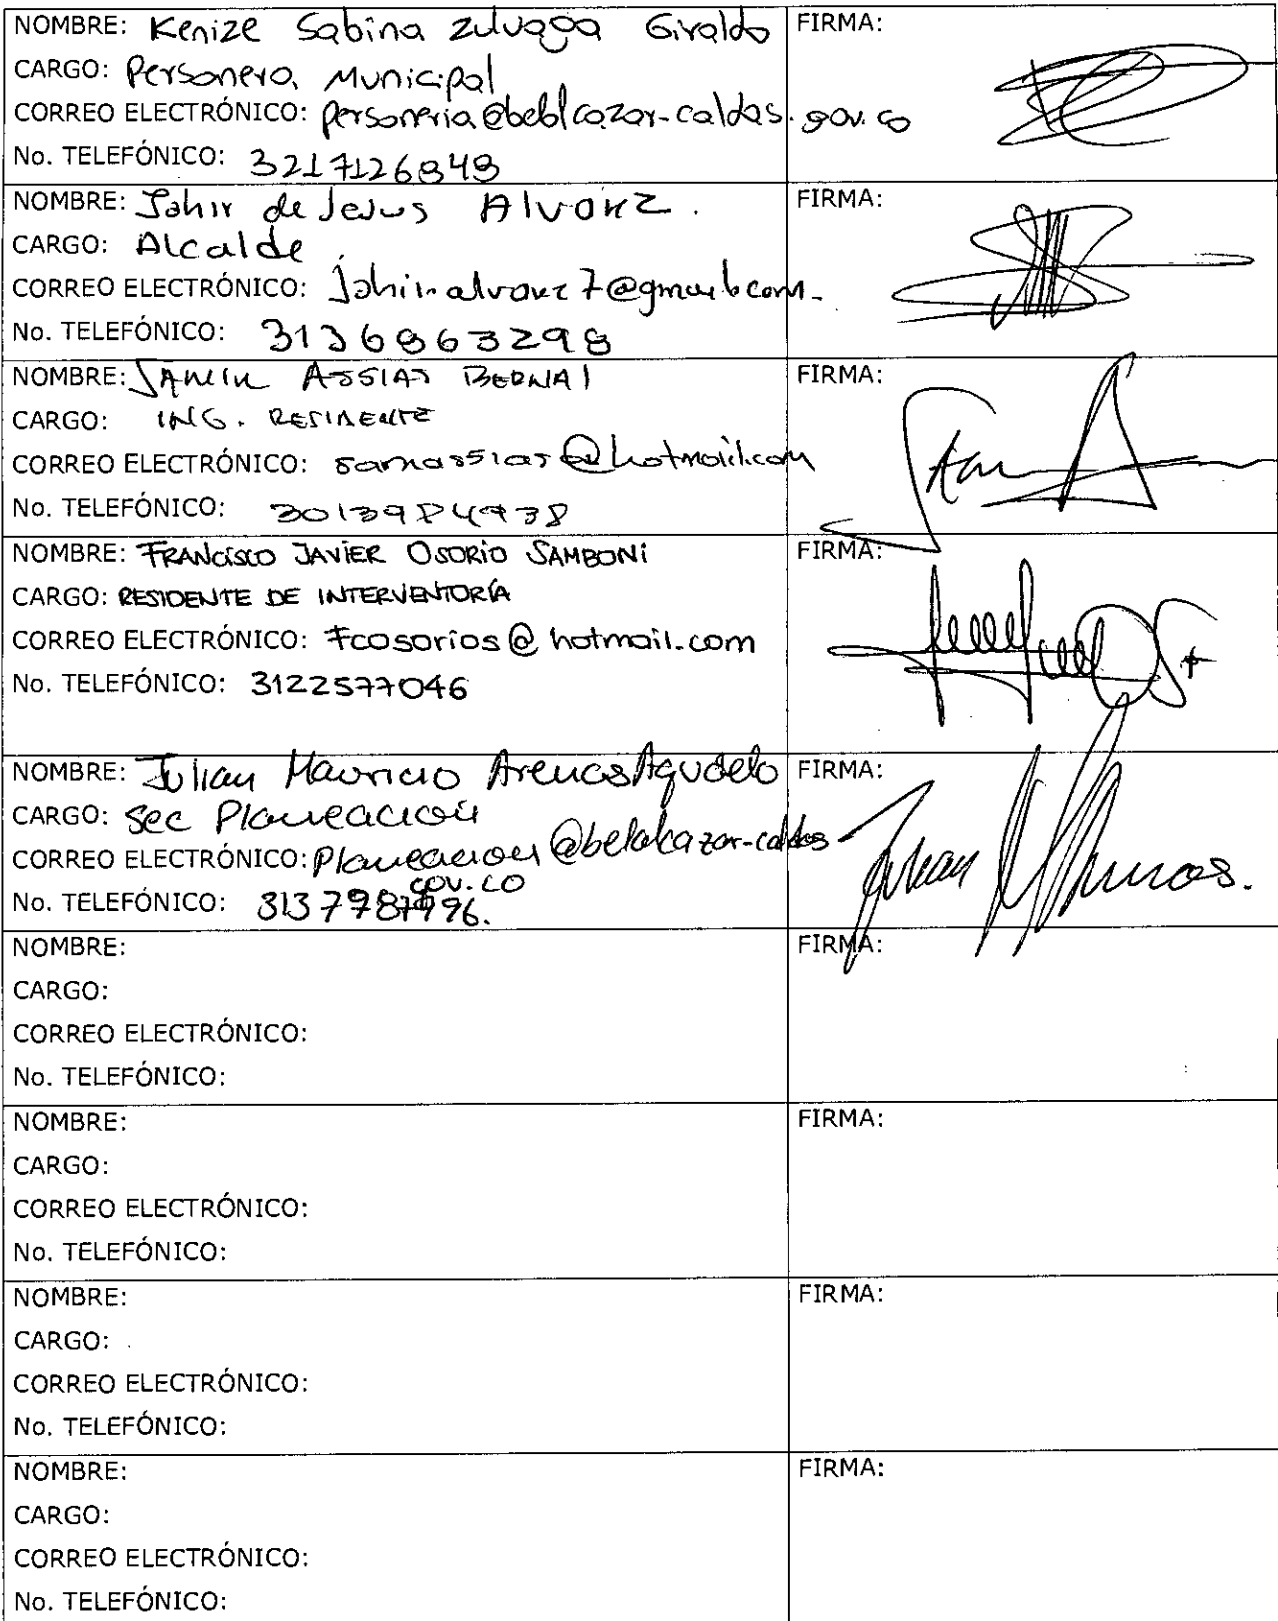 NOMBRE: Kenize Sabina Zuluaga Giraldo FIRMA:
CARGO: Personera Municipal
CORREO ELECTRÓNICO: personeria@beblcazar-caldas.gov.co
No. TELEFÓNICO: 3217126849
NOMBRE: Jahir de Jesus Alvarez. FIRMA:
CARGO: Alcalde
CORREO ELECTRÓNICO: Jahir.alvarez7@gmail.com.
No. TELEFÓNICO: 3136863298
NOMBRE: ASSIAS BERNAl FIRMA:
CARGO: ING. RESIDENTE
CORREO ELECTRÓNICO: samassias@hotmail.com
No. TELEFÓNICO: 3013984938
NOMBRE: FRANCISCO JAVIER OSORIO SAMBONI FIRMA:
CARGO: RESIDENTE DE INTERVENTORÍA
CORREO ELECTRÓNICO: Fcosorios@hotmail.com
No. TELEFÓNICO: 3122577046
NOMBRE: Julian Mauricio Arenas Agudelo FIRMA:
CARGO: Sec Planeación
CORREO ELECTRÓNICO: Planeacion@belalcazar-caldas
gov.co
No. TELEFÓNICO:
NOMBRE: FIRMA:
CARGO:
CORREO ELECTRÓNICO:
No. TELEFÓNICO:
NOMBRE: FIRMA:
CARGO:
CORREO ELECTRÓNICO:
No. TELEFÓNICO:
NOMBRE: FIRMA:
CARGO:
CORREO ELECTRÓNICO:
No. TELEFÓNICO:
NOMBRE: FIRMA:
CARGO:
CORREO ELECTRÓNICO:
No. TELEFÓNICO: